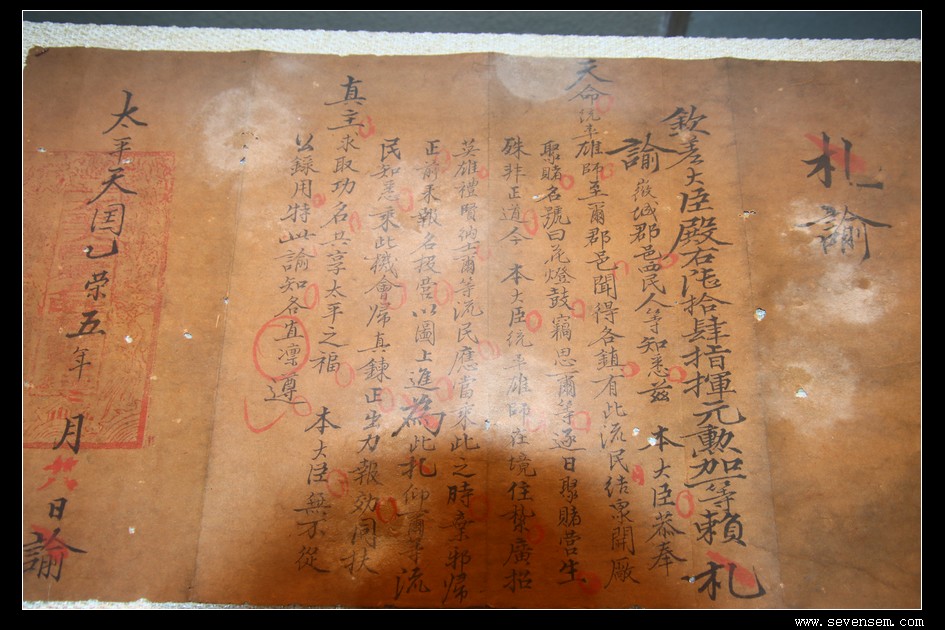 札諭
欽差大臣殿右陸拾肆指揮元勳加一等賴 札
諭 城郡邑民人等知悉茲 本大臣恭奉
天命統率雄師至爾郡邑聞得各鎮有此流民結衆開廠
聚賭名號曰花燈鼓竊思爾等逐日聚賭营生
殊非正道今 本大臣統率雄師在境住紮廣招
英雄禮賢納士爾等流民應當乘此之時棄邪歸
正前來報名投营以圖上進為此札仰爾等流
民知悉乘此機會歸真鍊正出力報効同扶
真主求取功名共享太平之福 本大臣無不從
公録用特此諭知各宜凛遵
太平天囯乙榮五年二月廿八日諭
www.sevensem.com